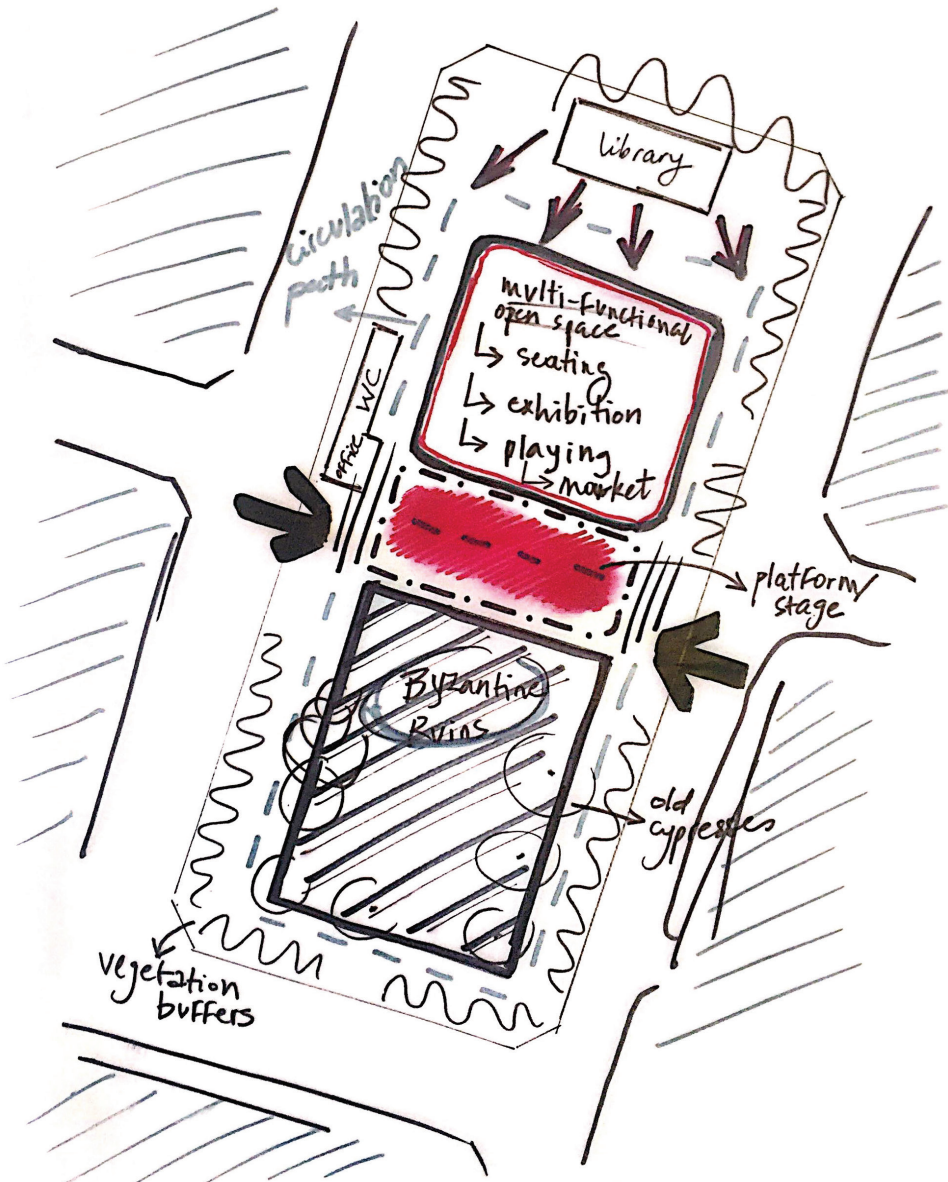 library
circulation
path
multi-functional
open space
seating
exhibition
playing
market
WC
office
platform/
stage
Byzantine
Ruins
old
cypresses
vegetation
buffers